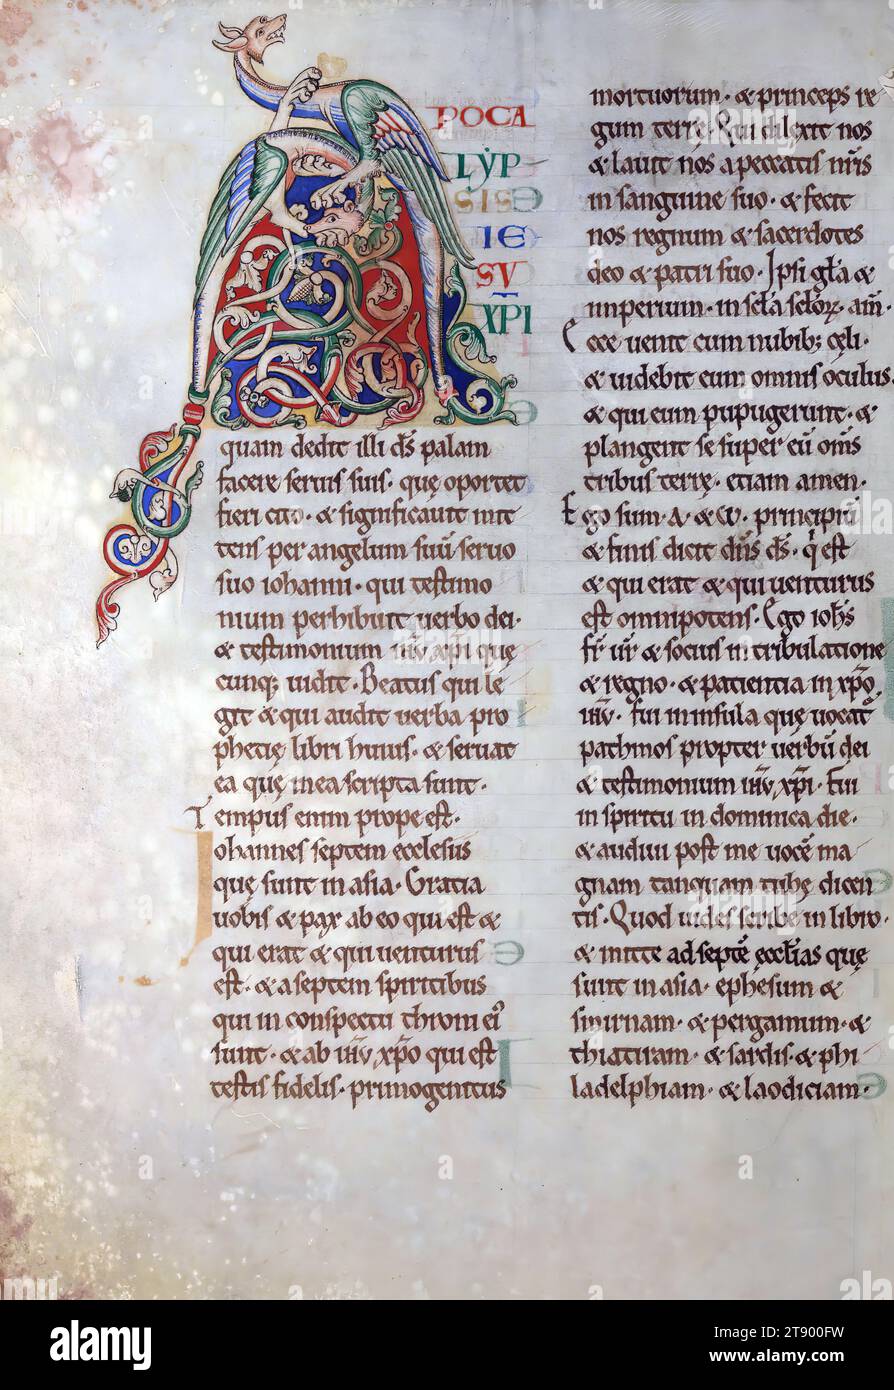 A
POCA
LYP
SIS
IE
SV
XPI
quam dedit illi d̄s palam
facere seruis suis · quę oportet
fieri cito · & significauit mit
tens per angelum suū seruo
suo iohanni · qui testimo
nium perhibuit verbo dei ·
& testimonium ih̄v xp̄i quę
cunq; uidit · Beatus qui le
git & qui audit verba pro
phetię libri huius · & seruat
ea quę in ea scripta sunt ·
Tempus enim prope est ·
Johannes septem ecclesiis
quę sunt in asia · Gratia
uobis & pax ab eo qui est &
qui erat & qui uenturus
est · & a septem spiritibus
qui in conspectu throni ei᾽
sunt · & ab ih̄v xp̄o qui est
testis fidelis · primogenitus
mortuorum · & princeps re
gum terrę · Qui dilexit nos
& lauit nos a peccatis nr̄is
in sanguine suo · & fecit
nos regnum & sacerdotes
deo & patri suo · Ipsi gl̄a &
imperium · in sc̄la sc̄lorꝝ · am̄ ·
Ecce uenit cum nubib; cęli ·
& uidebit eum omnis oculus
& qui eum pupugerunt · &
plangent se super eū om̄s
tribus terrę · etiam amen ·
Ego sum · A · & ω · principiū
& finis dicit dn̄s d̄s · q̇ est
& qui erat & qui uenturus
est omnipotens · Ego ioh̄s
fr̄ ur̄ & socius in tribulatione
& regno · & patientia in xp̄o
ih̄v · fui in insula quę uocat᷑
pathmos propter uerbū dei
& testimonium ih̄v xp̄i · Fui
in spiritu in dominica die ·
& audiui post me uocē ma
gnam tanquam tubę dicen
tis · Quod uides scribe in libro ·
& mitte ad septē ęccl̄ias quę
sunt in asia · ephesum &
smirnam · & pergamum · &
thiatiram · & sardis · & phi
ladelphiam · & laodiciam ·
alamy
Image ID: 2T900FW
www.alamy.com